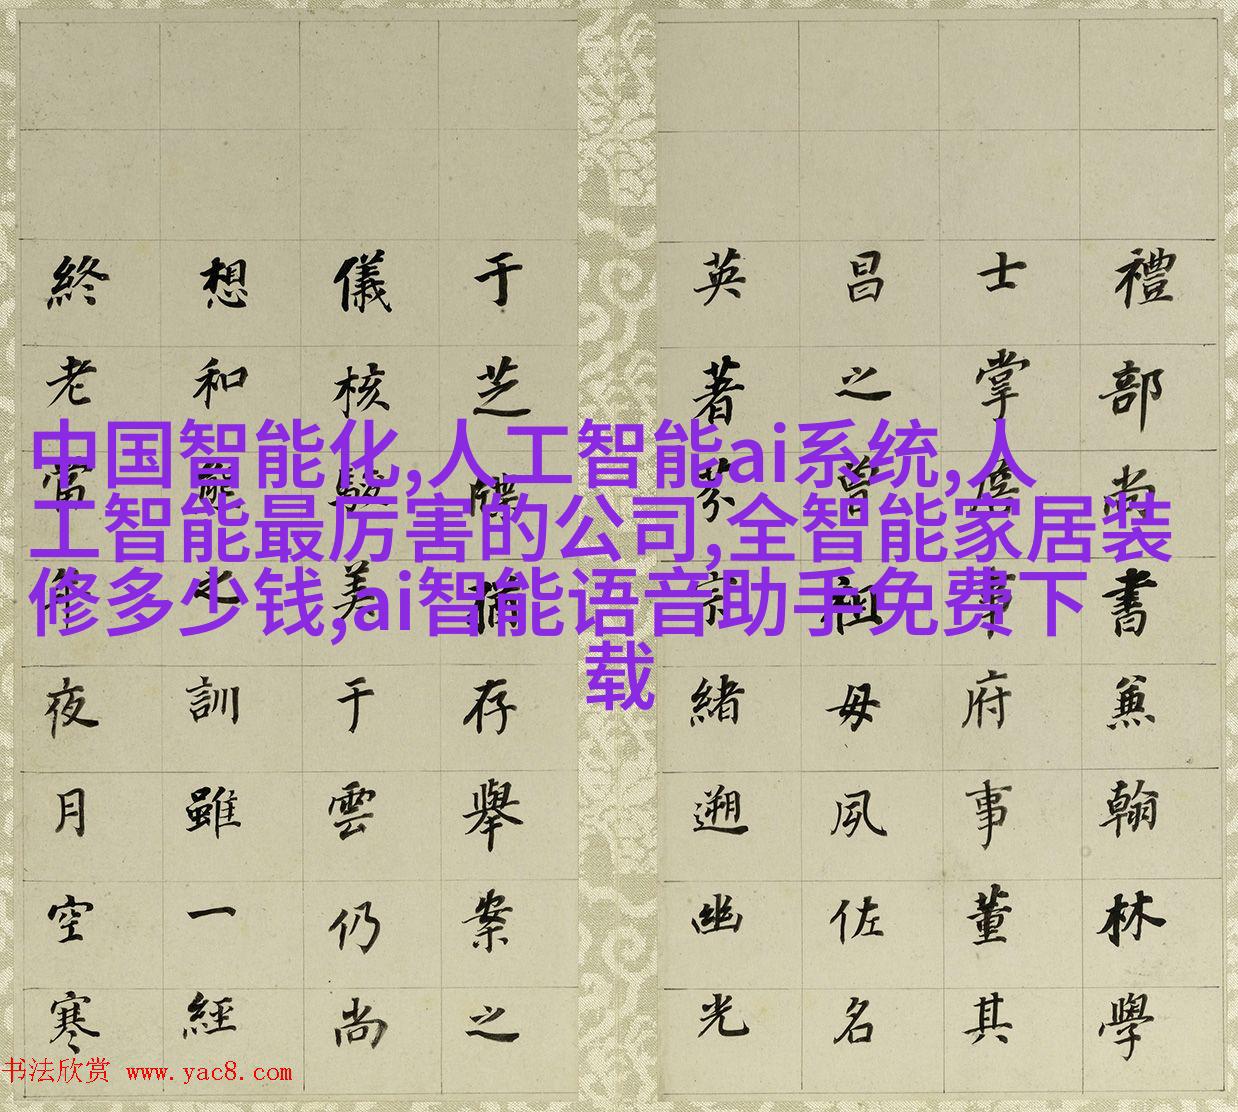 禮部尚書兼翰林學
士掌詹事府事董其
昌之曾祖母夙佐名
英著芬宗緒遡幽光
于芝牒猶存舉案之
儀核駿美于雲仍尚
想和熊之訓雖一經
終老當年夜月空寒
中国智能化,人工智能ai系统,人
工智能最厉害的公司,全智能家居装
修多少钱,ai智能语音助手免费下
载
书法欣赏 www.yac8.com